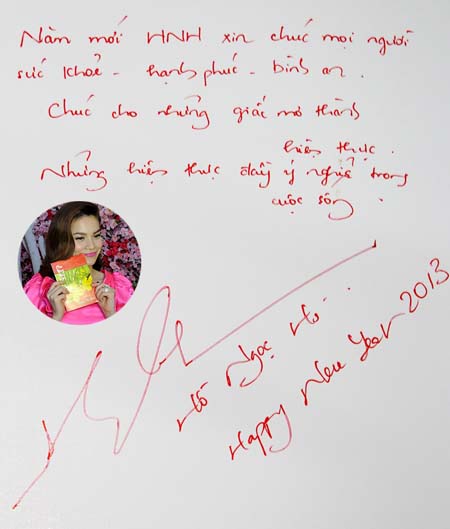 Năm mới HNH xin chúc mọi người
sức khoẻ - hạnh phúc - bình an.
Chúc cho những giấc mơ thành
hiện thực.
Những hiện thực đầy ý nghĩa trong
cuộc sống.
Hồ Ngọc Hà.
Happy New Year 2013